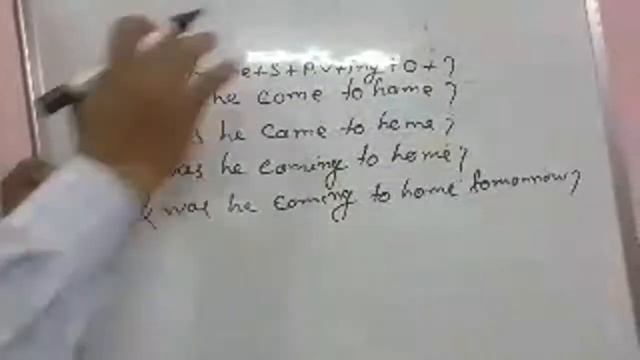 e + S + P.V + ing + O + ?
he come to home ?
he came to home ?
was he coming to home ?
was he coming to home tomorrow ?